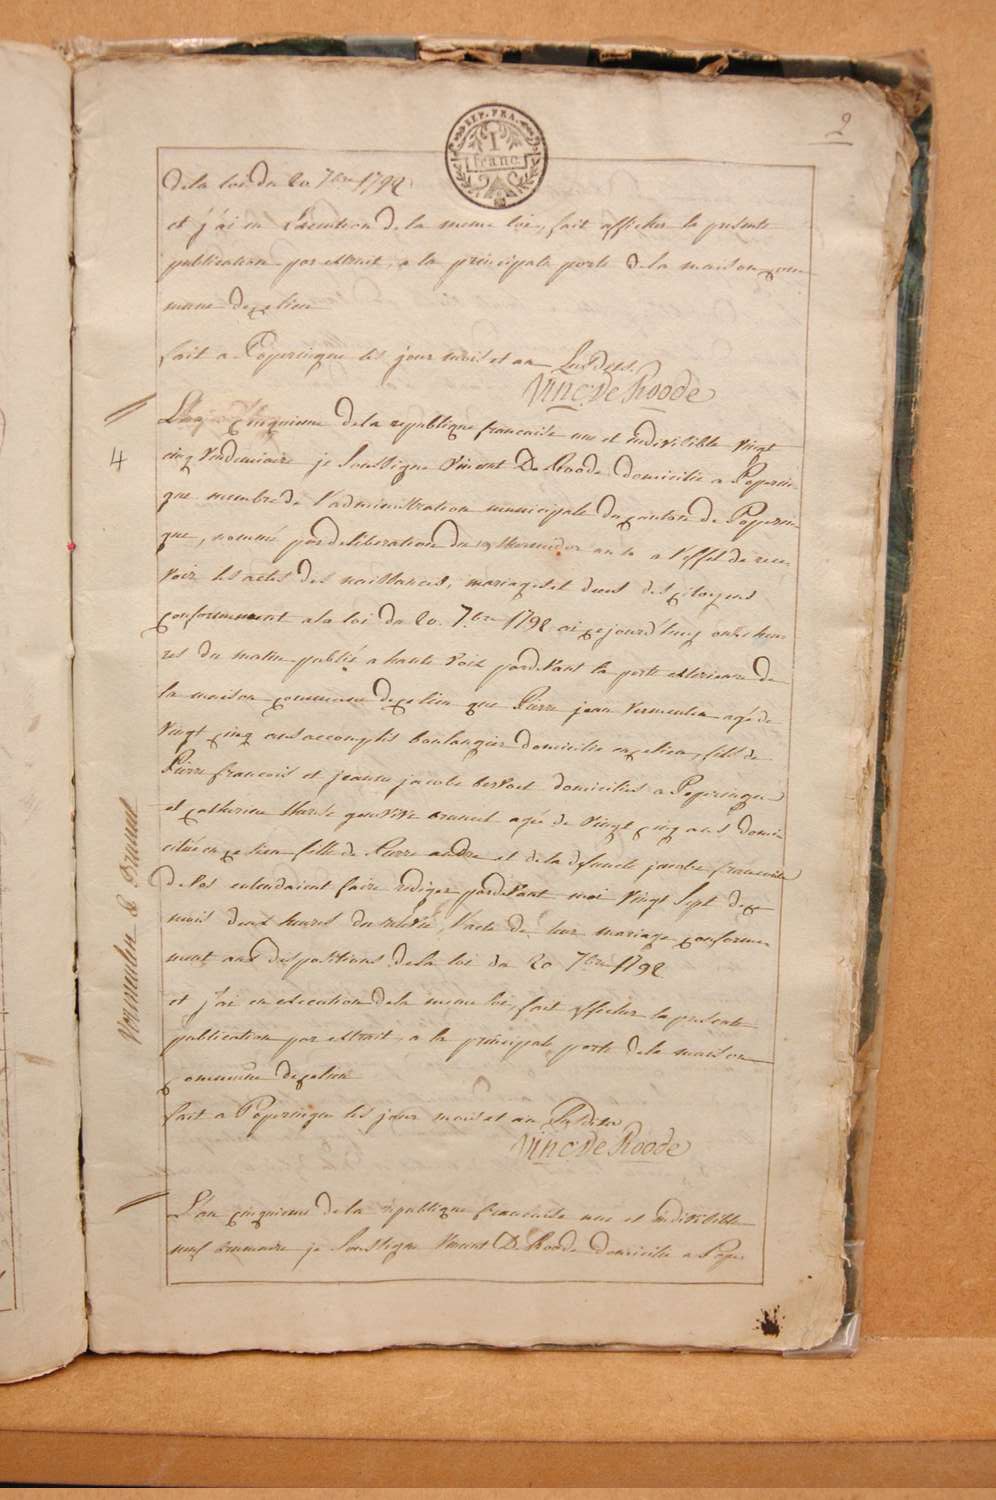 REP. FRA.
1
franc
2
de la loi du 20 7bre 1792
et j'ai en Execution de la meme loi, fait afficher la presente
publication par extrait, a la principale porte de la maison com
mune de ce lieu
fait a Poperingue les jour mois et an Susdits
Vinc: De Roode
4
L'an Cinquieme de la republique francaise une et indivisible vingt
cinq vendemiaire je Soussigne Vincent De Roode domicilie a Poperin
gue membre de l'administration municipale du canton de Poperin
gue, nommé par deliberation du 19 thermidor an 4e a l'effet de rece
voir les actes des naissances, mariages et deces des citoyens
conformement a la loi du 20. 7bre 1792 ai cejourd'huy onze heu
res du matin publié a haute voix pardevant la porte exterieure de
la maison commune de ce lieu que Pierre jean Vermeulen agé de
vingt cinq ans accomplis boulangier domicilie en ce lieu, fils de
Pierre francois et jeanne jacobe bertoet domicilies a Poperingue
et catherine therese genevive brunel agée de vingt cinq ans domi
ciliée en ce lieu fille de Pierre andre et de la defuncte jacobe francoise
de vos entendaient faire rediger pardevant moi vingt Sept de ce
mois deux heures de relevée, l'acte de leur mariage conforme
ment aux dispositions de la loi du 20 7bre 1792
et j'ai en execution de la meme loi, fait afficher la presente
publication par extrait, a la principale porte de la maison
commune de ce lieu
fait a Poperingue les jour mois et an Susdits
Vinc: De Roode
Vermeulen & Brunel
L'an cinquieme de la republique francaise une et indivisible
neuf brumaire je Soussigne Vincent De Roode domicilie a Pope